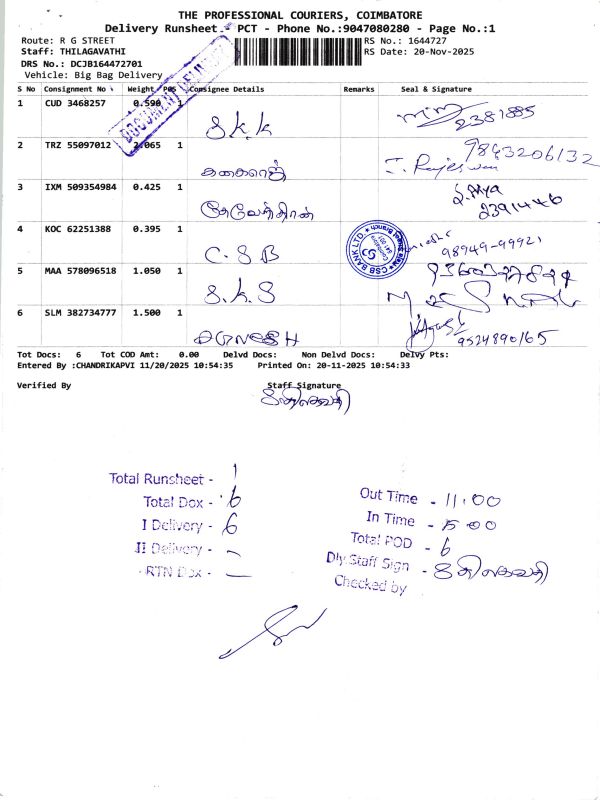 THE PROFESSIONAL COURIERS, COIMBATORE
Delivery Runsheet - PCT - Phone No.:9047080280 - Page No.:1
Route: R G STREET RS No.: 1644727
Staff: THILAGAVATHI RS Date: 20-Nov-2025
DRS No.: DCJB164472701
Vehicle: Big Bag Delivery
DOCUMENT DELIVERY
S No Consignment No Weight PCS Consignee Details Remarks Seal & Signature
1 CUD 3468257 0.590 1 S.K.K 2381885
2 TRZ 55097012 2.065 1 9843206132
3 IXM 509354984 0.425 1 2391446
4 KOC 62251388 0.395 1 C.S.B CSB BANK LTD. 98949-99921
5 MAA 578096518 1.050 1 S.K.S
6 SLM 382734777 1.500 1 9524890165
Tot Docs: 6 Tot COD Amt: 0.00 Delvd Docs: Non Delvd Docs: Delvy Pts:
Entered By :CHANDRIKAPVI 11/20/2025 10:54:35 Printed On: 20-11-2025 10:54:33
Verified By Staff Signature
Total Runsheet - 1
Total Dox - 6
I Delivery - 6
II Delivery - -
RTN Dox - -
Out Time - 11.00
In Time - 15.00
Total POD - 6
Dly.Staff Sign -
Checked by